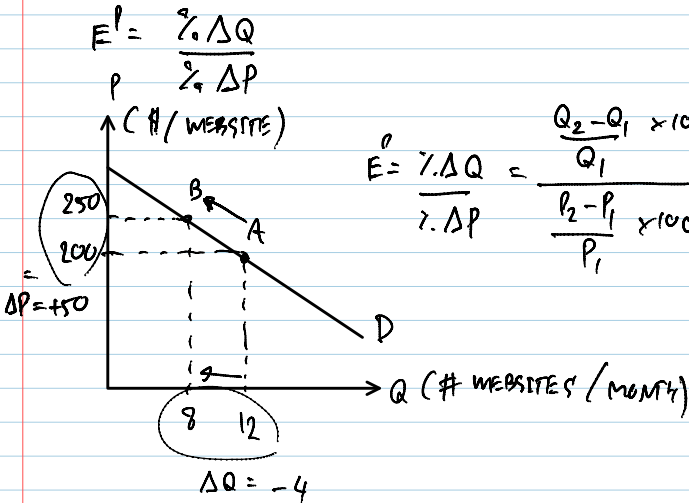 E^P = %ΔQ / %ΔP
P
($/WEBSITE)
E^P = %ΔQ / %ΔP = (Q₂-Q₁ / Q₁ ×10) / (P₂-P₁ / P₁ ×100)
B
A
250
200
=
ΔP=+50
D
Q (# WEBSITES / MONTH)
8 12
ΔQ = -4